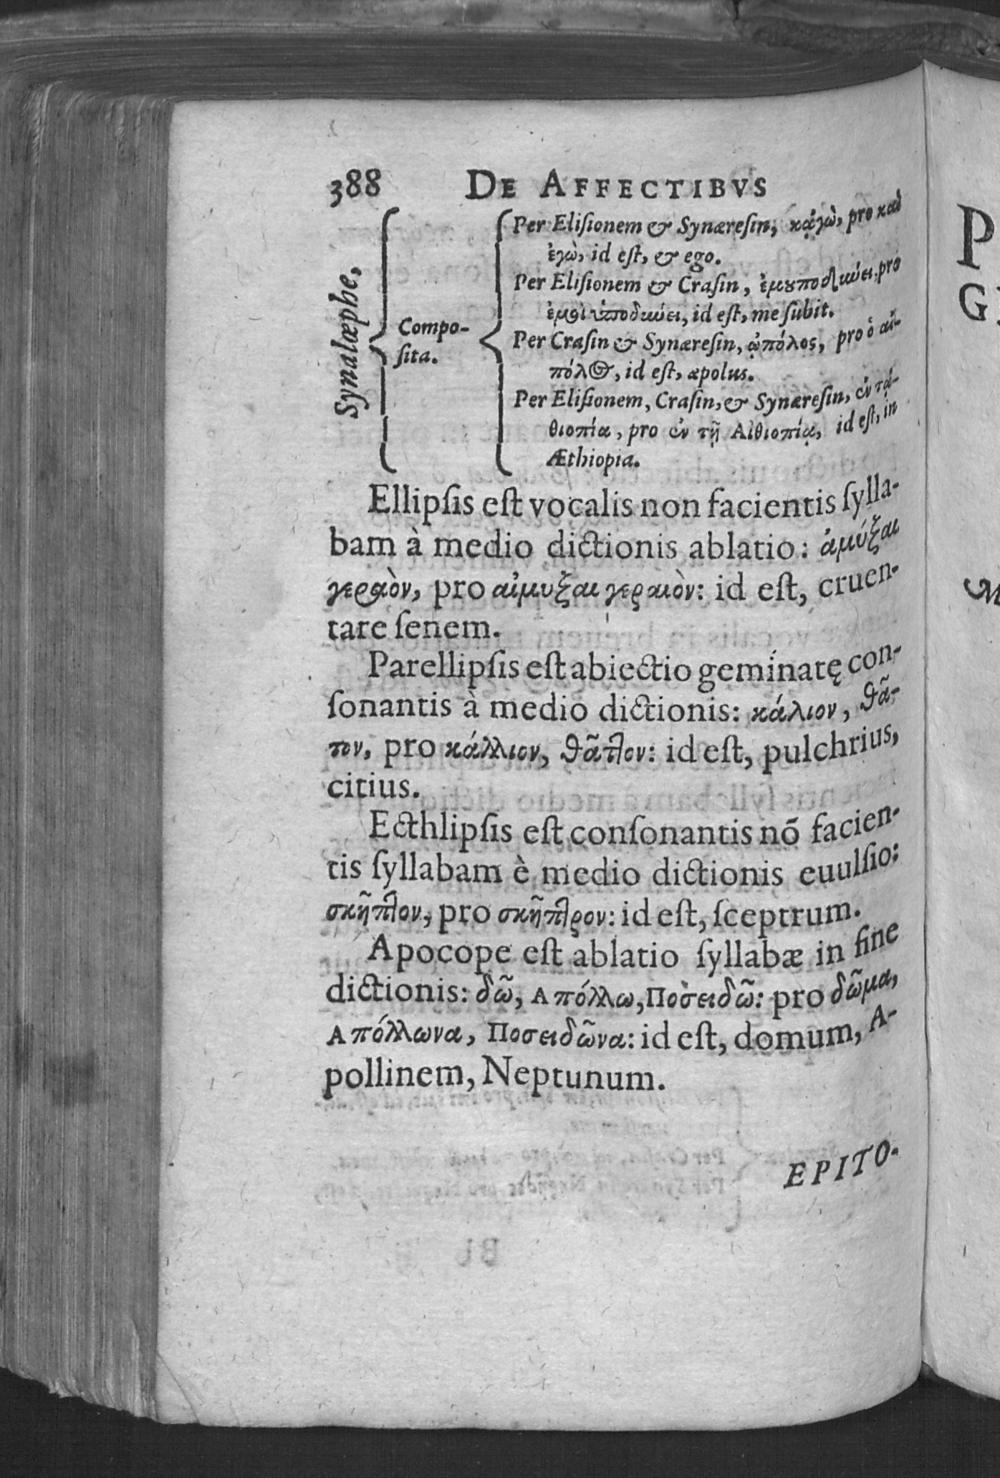 388 DE AFFECTIBVS
Synalæphe,
Compo-
sita.
Per Elisionem & Synæresin, κᾀγὼ, pro καὶ
ἐγὼ, id est, & ego.
Per Elisionem & Crasin, ἐμουποδύει, pro
ἐμοὶ ὑποδύει, id est, me subit.
Per Crasin & Synæresin, ᾠπόλος, pro ὁ αἰ-
πόλος, id est, æpolus.
Per Elisionem, Crasin, & Synæresin, ἐν τᾀ-
θιοπία, pro ἐν τῇ Αἰθιοπίᾳ, id est, in
Æthiopia.
Ellipsis est vocalis non facientis sylla-
bam à medio dictionis ablatio: ἀμύξαι
γεραὸν, pro αἰμυξαι γεραιὸν: id est, cruen-
tare senem.
Parellipsis est abiectio geminatę con-
sonantis à medio dictionis: κάλιον, θᾶ-
τον, pro κάλλιον, θᾶττον: id est, pulchrius,
citius.
Ecthlipsis est consonantis nõ facien-
tis syllabam è medio dictionis euulsio:
σκῆπτον, pro σκῆπτρον: id est, sceptrum.
Apocope est ablatio syllabæ in fine
dictionis: δῶ, Απόλλω, Ποσειδῶ: pro δῶμα,
Απόλλωνα, Ποσειδῶνα: id est, domum, A-
pollinem, Neptunum.
EPITO-